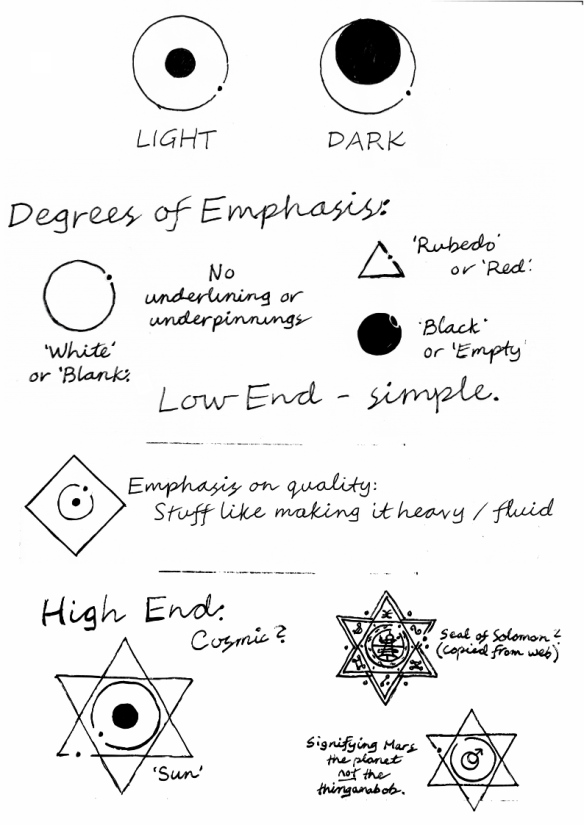 LIGHT
DARK
Degrees of Emphasis:
'White'
or 'Blank'.
No
underlining or
underpinnings
'Rubedo'
or 'Red'.
'Black'
or 'Empty'
Low End - simple.
Emphasis on quality:
Stuff like making it heavy / fluid
High End:
Cosmic?
'Sun'
Seal of Solomon?
(copied from web)
Signifying Mars
the planet
not the
thinganabob.